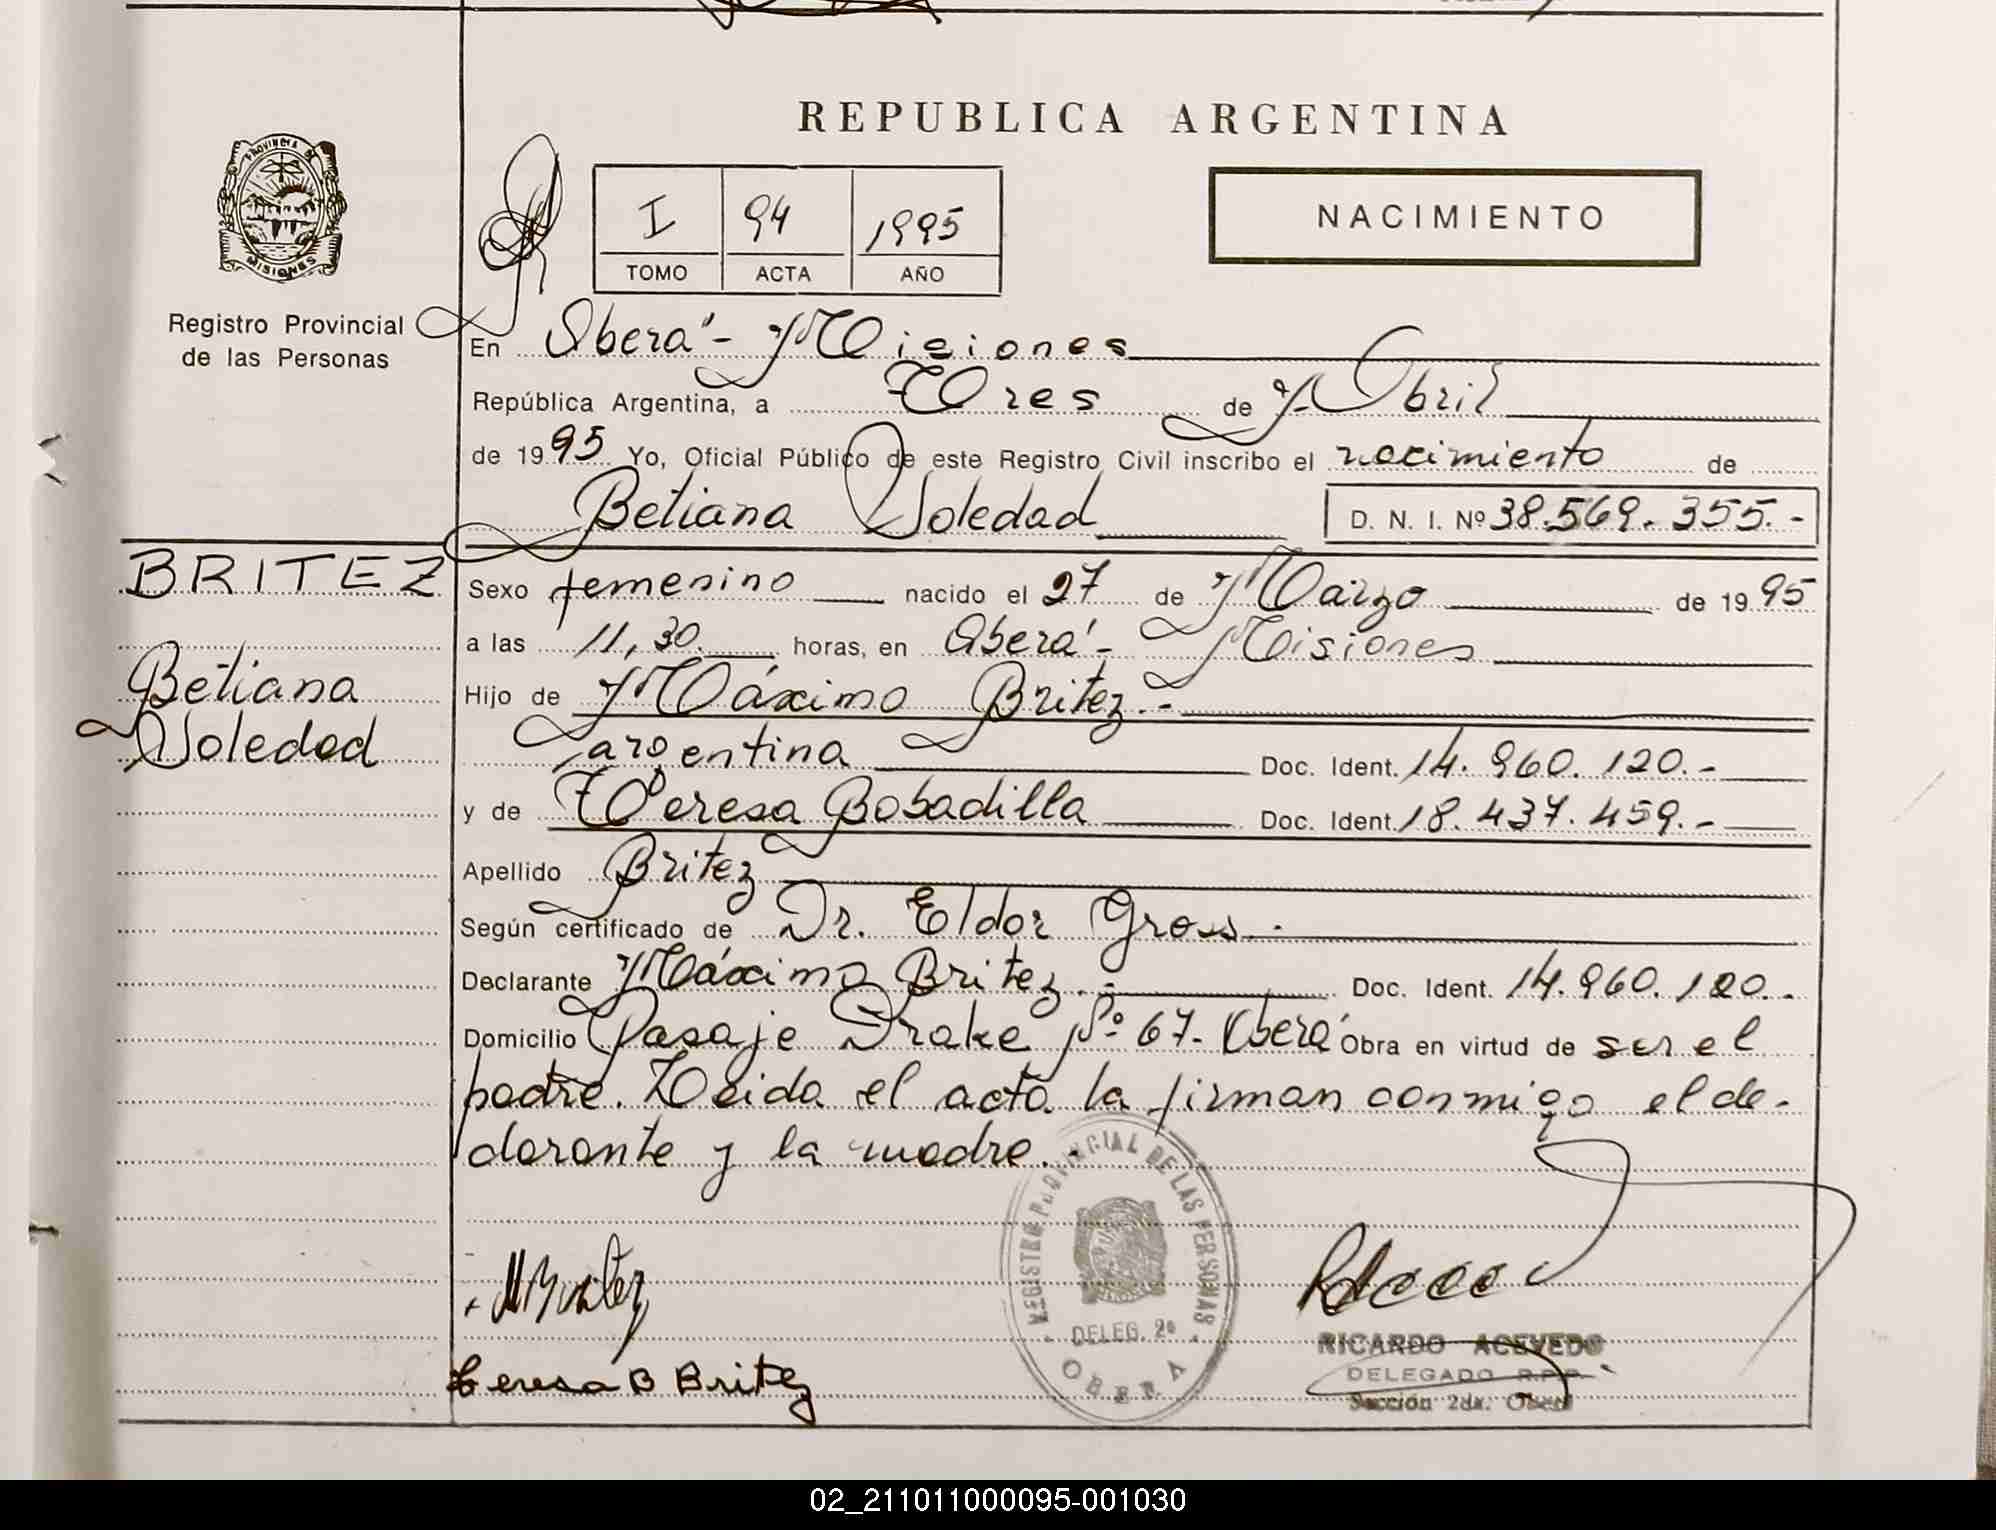 REPUBLICA ARGENTINA
PROVINCIA DE
MISIONES
Registro Provincial
de las Personas
I 94 1995
TOMO ACTA AÑO
NACIMIENTO
En Oberá - Misiones
República Argentina, a Tres de Abril
de 1995 Yo, Oficial Público de este Registro Civil inscribo el nacimiento de
Betiana Soledad D. N. I. Nº 38.569.355.-
BRITEZ
Betiana
Soledad
Sexo femenino nacido el 27 de Marzo de 1995
a las 11,30. horas, en Oberá - Misiones
Hijo de Máximo Britez.-
argentina Doc. Ident. 14.960.120.-
y de Teresa Bobadilla Doc. Ident. 18.437.459.-
Apellido Britez
Según certificado de Dr. Eldor Gross.-
Declarante Máximo Britez.- Doc. Ident. 14.960.120.-
Domicilio Pasaje Drake Nº 67- Oberá Obra en virtud de ser el
padre. Leida el acta la firman conmigo el de-
clarante y la madre.-
M Britez
Teresa B Britez
REGISTRO PROVINCIAL DE LAS PERSONAS
DELEG. 2ª
OBERA
RICARDO ACEVEDO
DELEGADO R.P.P.
Sección 2da. Oberá
02_211011000095-001030